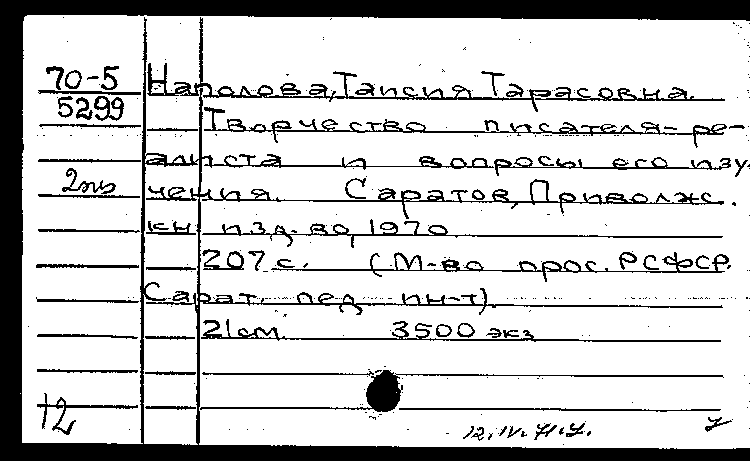 70-5 Наполова, Таисия Тарасовна.
5299 Творчество писателя-ре-
алиста и вопросы его изу-
чения. Саратов, Приволжс.
кн. изд-во, 1970
207 с. (М-во прос. РСФСР.
Сарат. пед. ин-т).
21 см. 3500 экз
12